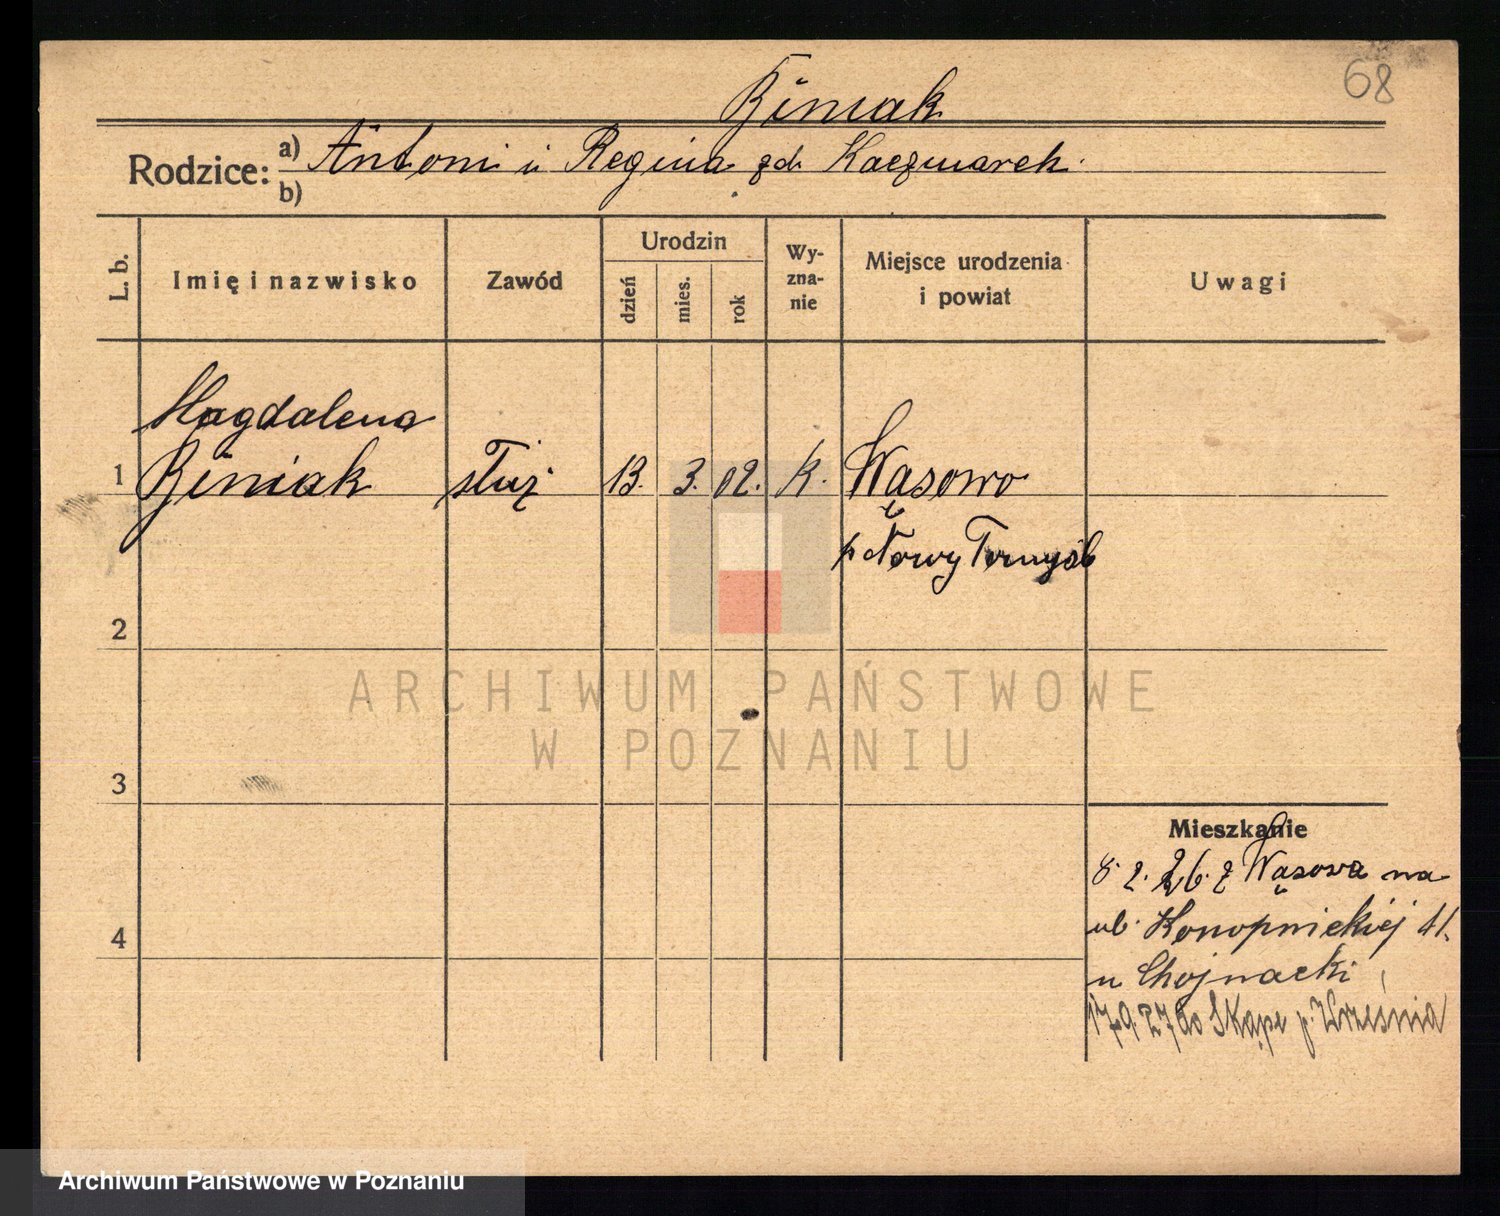 68
Biniak
Rodzice: a) Antoni i Regina zd. Kaczmarek.
b)
L. b.
Imię i nazwisko
Zawód
Urodzin
dzień
mies.
rok
Wy-
zna-
nie
Miejsce urodzenia
i powiat
Uwagi
Magdalena
1 Biniak służ. 13. 3. 02. K. Wąsowo
p. Nowy Tomyśl
2
3
4
Mieszkanie
8. 2. 26. z Wąsowa na
ul. Konopnickiej 11.
u Chojnacki
17.9.27 do Skąpe p. Września
ARCHIWUM PAŃSTWOWE
W POZNANIU
Archiwum Państwowe w Poznaniu